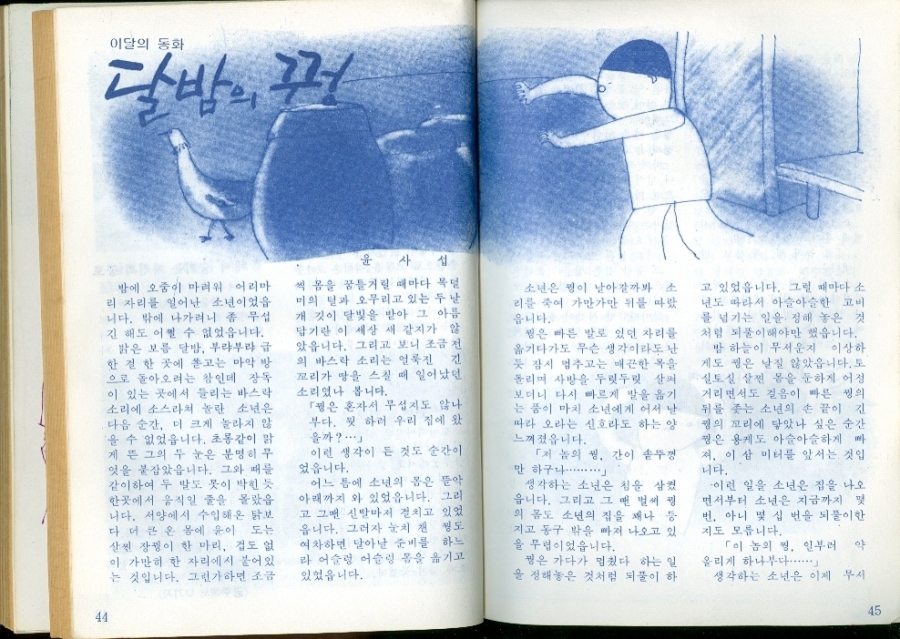 이달의 동화
달밤의 꿩
윤 사 섭
밤에 오줌이 마려워 어리마
리 자리를 일어난 소년이었읍
니다. 밖에 나가려니 좀 무섭
긴 해도 어쩔 수 없었읍니다.
맑은 보름 달밤, 부랴부랴 급
한 걸 한 곳에 쏟고는 마악 방
으로 돌아오려는 참인데 장독
이 있는 곳에서 들리는 바스락
소리에 소스라쳐 놀란 소년은
다음 순간, 더 크게 놀라지 않
을 수 없었읍니다. 초롱같이 맑
게 뜬 그의 두 눈은 분명히 무
엇을 붙잡았읍니다. 그와 때를
같이하여 두 발도 못이 박힌 듯
한곳에서 움직일 줄을 몰랐읍
니다. 서양에서 수입해온 닭보
다 더 큰 온 몸에 윤이 도는
살찐 장꿩이 한 마리, 겁도 없
이 가만히 한 자리에서 붙어있
는 것입니다. 그런가하면 조금
씩 몸을 꿈틀거릴 때마다 목덜
미의 털과 오무리고 있는 두 날
개 깃이 달빛을 받아 그 아름
답기란 이 세상 새 같지가 않
았읍니다. 그리고 보니 조금 전
의 바스락 소리는 얼룩진 긴
꼬리가 땅을 스칠 때 일어났던
소리였나 봅니다.
「꿩은 혼자서 무섭지도 않나
부다. 뭣 하러 우리 집에 왔
을까?…」
이런 생각이 든 것도 순간이
었읍니다.
어느 틈에 소년의 몸은 뜰아
아래까지 와 있었읍니다. 그리
고 그땐 신발마저 걸치고 있었
읍니다. 그러자 눈치 챈 꿩도
여차하면 달아날 준비를 하느
라 어슬렁 어슬렁 몸을 옮기고
있었읍니다.
44
소년은 꿩이 날아갈까봐 소
리를 죽여 가만가만 뒤를 따랐
읍니다.
꿩은 빠른 발로 있던 자리를
옮기다가도 무슨 생각이라도 난
듯 잠시 멈추고는 매끈한 목을
돌리며 사방을 두릿두릿 살펴
보더니 다시 빠르게 발을 옮기
는 품이 마치 소년에게 어서 날
따라 오라는 신호라도 하는 양
느껴졌읍니다.
「저 놈의 꿩, 간이 솥뚜껑
만 하구나………」
생각하는 소년은 침을 삼켰
읍니다. 그리고 그 땐 벌써 꿩
의 몸도 소년의 집을 꽤나 등
지고 동구 밖을 빠져 나오고 있
을 무렵이었읍니다.
꿩은 가다가 멈췄다 하는 일
을 정해놓은 것처럼 되풀이 하
고 있었읍니다. 그럴 때마다 소
년도 따라서 아슬아슬한 고비
를 넘기는 일을 정해 놓은 것
처럼 되풀이해야만 했읍니다.
밤 하늘이 무서운지 이상하
게도 꿩은 날질 않았읍니다. 토
실토실 살찐 몸을 둔하게 어정
거리면서도 걸음이 빠른 꿩의
뒤를 좇는 소년의 손 끝이 긴
꿩의 꼬리에 닿았나 싶은 순간
꿩은 용케도 아슬아슬하게 빠
져, 이 삼 미터를 앞서는 것입
니다.
이런 일을 소년은 집을 나오
면서부터 소년은 지금까지 몇
번, 아니 몇 십 번을 되풀이한
지도 모릅니다.
「이 놈의 꿩, 일부러 약
올리게 하나부다……」
생각하는 소년은 이제 무서
45